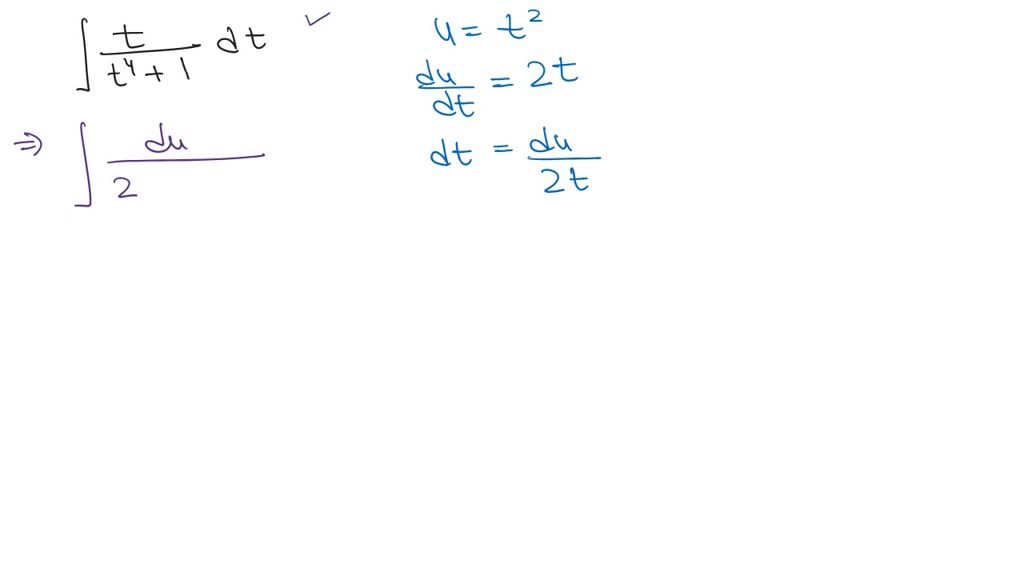 ∫ t/(t⁴ + 1) dt ✓
u = t²
du/dt = 2t
dt = du/2t
⇒ ∫ du/2